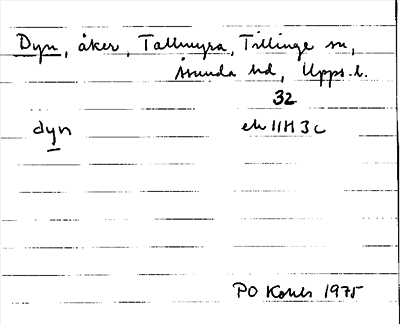 Dyn, åker, Tallmyra, Tillinge sn,
Åsunda hd, Upps. l.
32
dyn ek 11H 3c
PO Kohls 1975